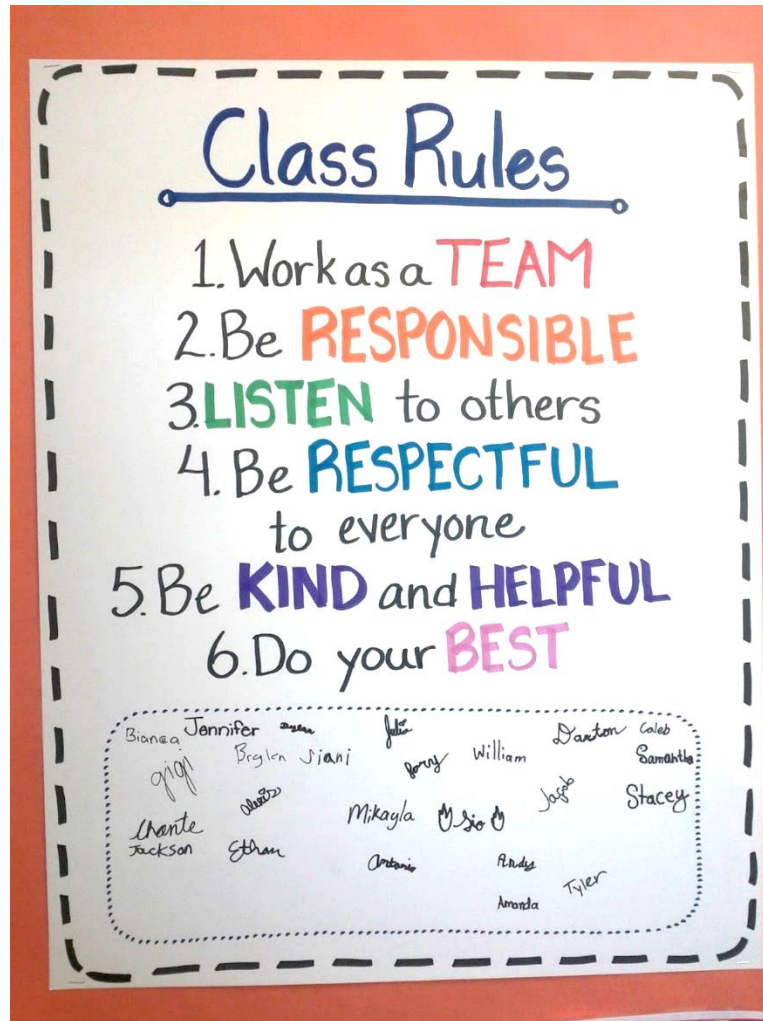 Class Rules
1. Work as a TEAM
2. Be RESPONSIBLE
3. LISTEN to others
4. Be RESPECTFUL
to everyone
5. Be KIND and HELPFUL
6. Do your BEST
Bianca Jennifer Julia Darton Caleb
gigi Braylen Siani Rory William Samantha
Alexis Mikayla Sio Jacob Stacey
Chante
Jackson Ethan Antonio Andy
Amanda Tyler